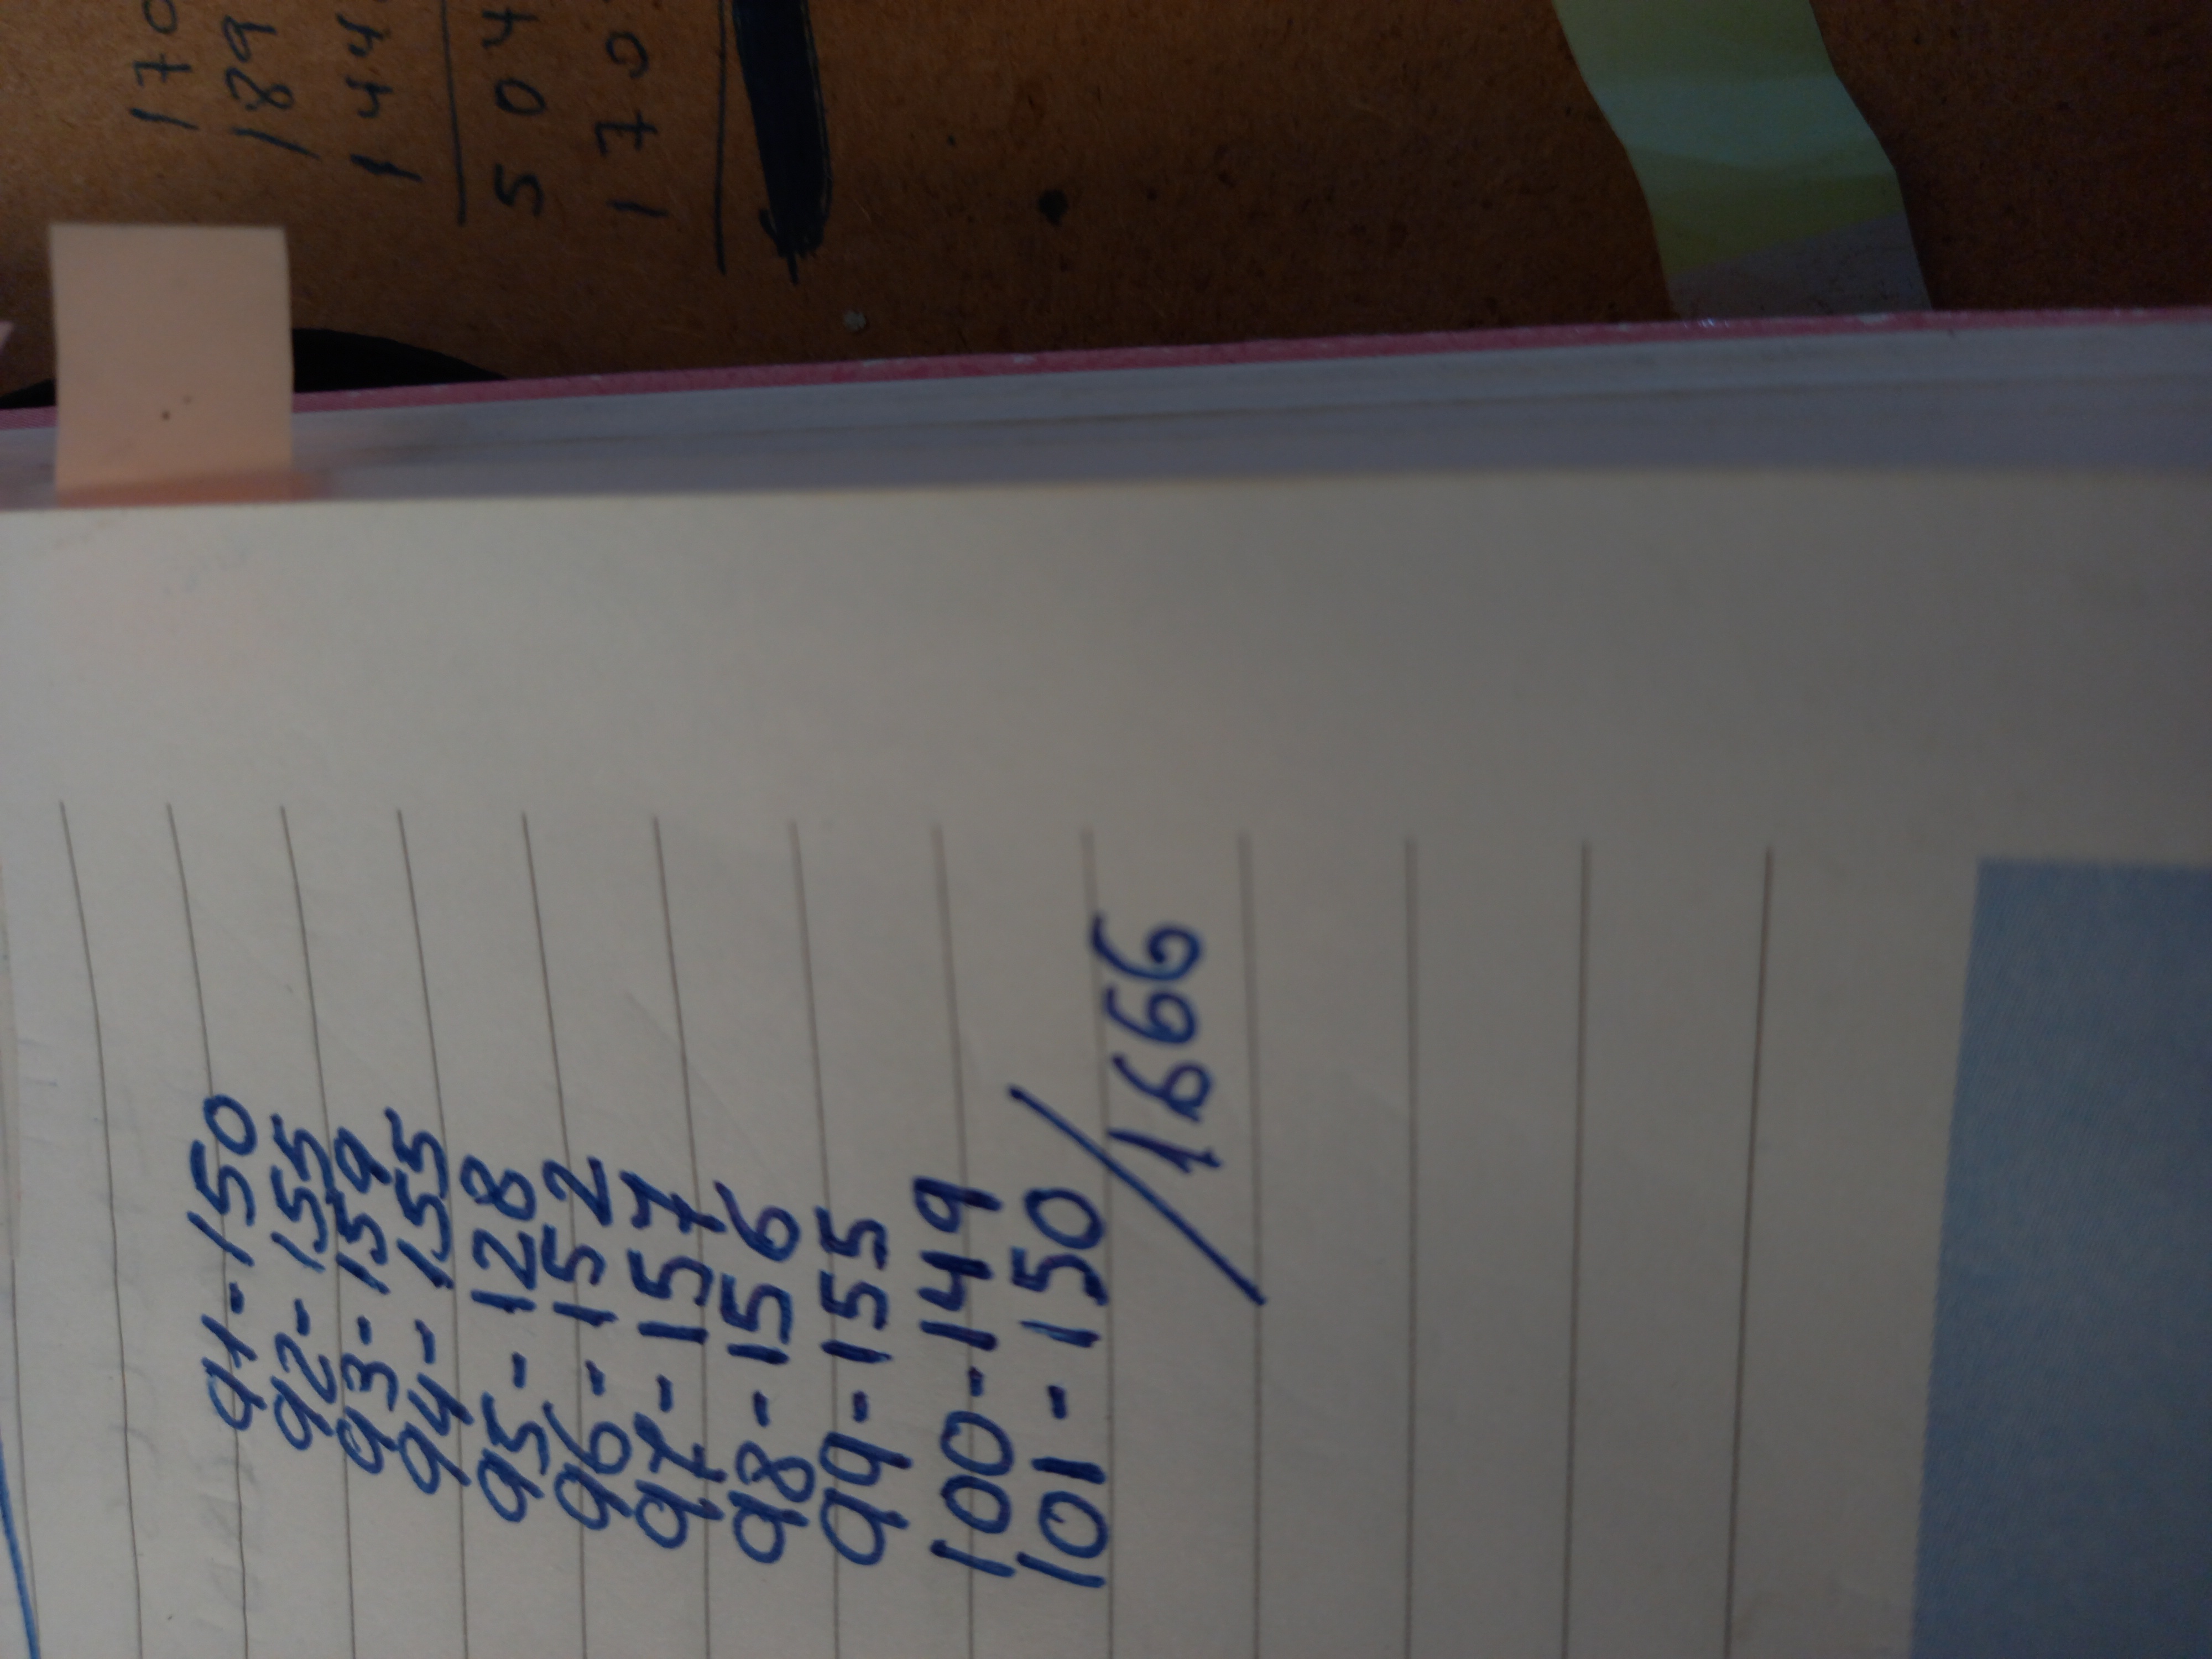 170
189
144
504
170
91-150
92-155
93-159
94-155
95-128
96-152
97-157
98-156
99-155
100-149
101-150/1666